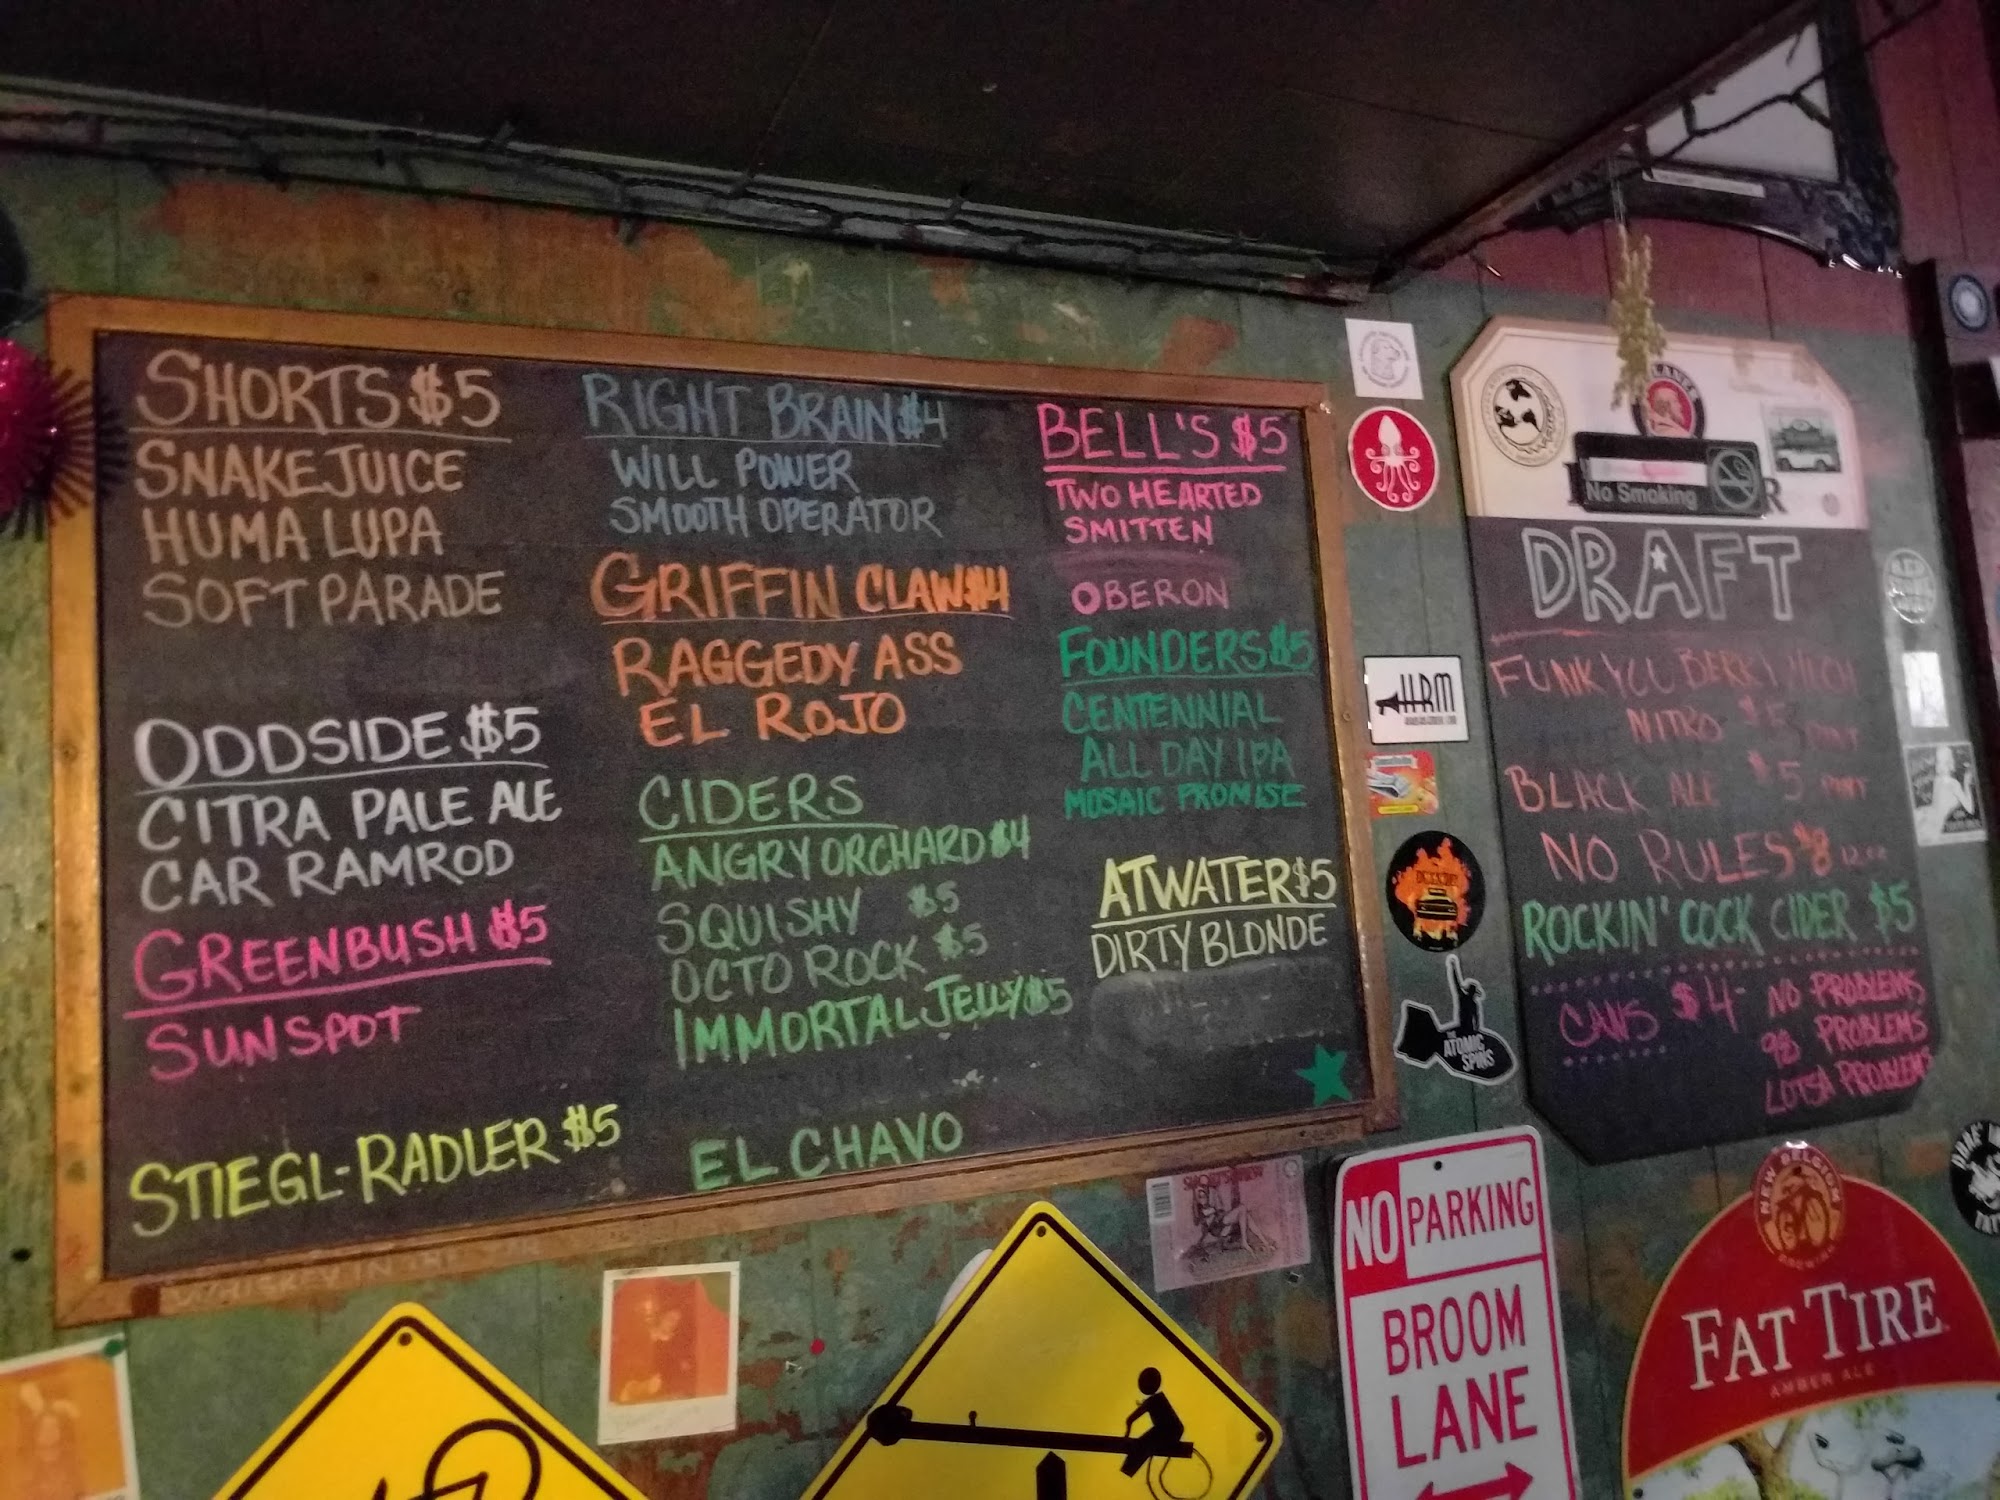 SHORTS $5
SNAKEJUICE
HUMA LUPA
SOFT PARADE
ODDSIDE $5
CITRA PALE ALE
CAR RAMROD
GREENBUSH $5
SUNSPOT
STIEGL-RADLER $5
RIGHT BRAIN $4
WILL POWER
SMOOTH OPERATOR
GRIFFIN CLAW $4
RAGGEDY ASS
EL ROJO
CIDERS
ANGRY ORCHARD $4
SQUISHY $5
OCTO ROCK $5
IMMORTAL JELLY $5
EL CHAVO
BELL'S $5
TWO HEARTED
SMITTEN
OBERON
FOUNDERS $5
CENTENNIAL
ALL DAY IPA
MOSAIC PROMISE
ATWATER $5
DIRTY BLONDE
No Smoking
DRAFT
FUNKYCU BERRY
NITRO $5 PINT
BLACK ALE $5 PINT
NO RULES $8 12 oz
ROCKIN' COCK CIDER $5
CANS $4- NO PROBLEMS
98 PROBLEMS
LOTSA PROBLEMS
HRM
THE
ATOMIC
SPINS
WHISKEY IN THE JAR
NO PARKING
BROOM
LANE
NEW BELGIUM
BREWING
FAT TIRE
AMBER ALE